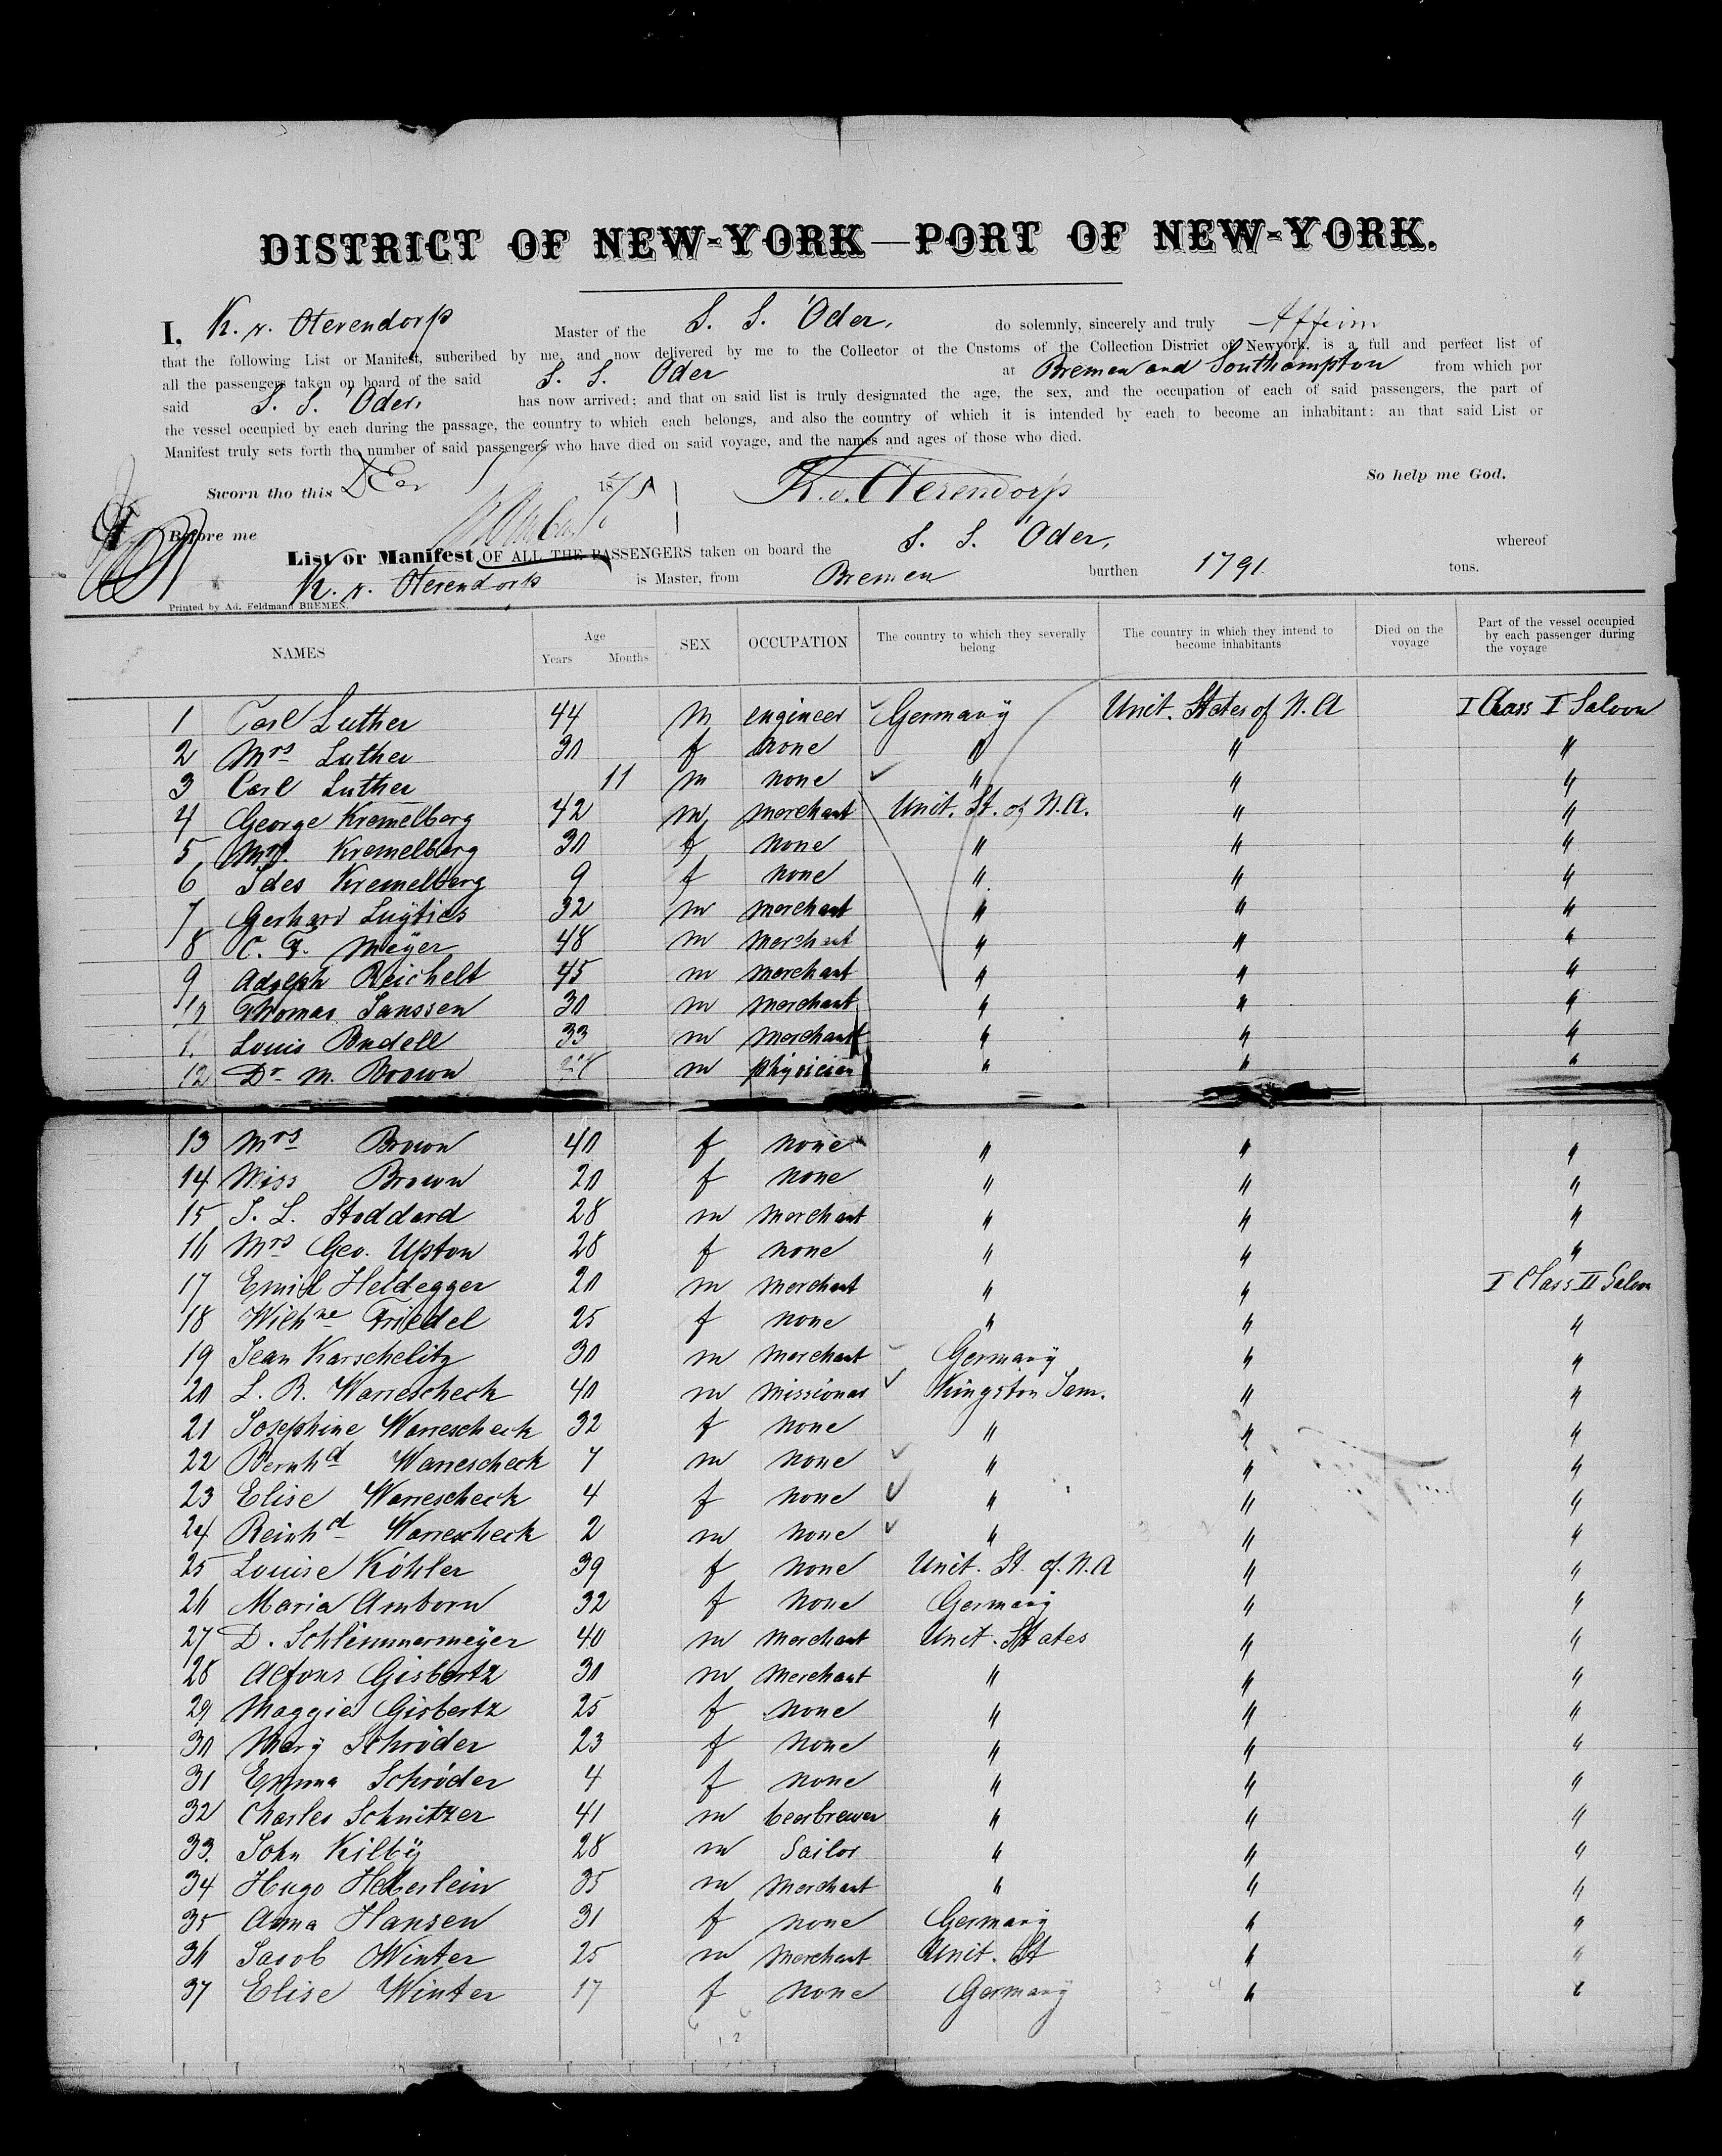 DISTRICT OF NEW-YORK—PORT OF NEW-YORK.
I, K. v. Oterendorp Master of the S. S. Oder, do solemnly, sincerely and truly Affirm
that the following List or Manifest, subcribed by me, and now delivered by me to the Collector of the Customs of the Collection District of Newyork, is a full and perfect list of
all the passengers taken on board of the said S. S. Oder at Bremen and Southampton from which por
said S. S. Oder, has now arrived: and that on said list is truly designated the age, the sex, and the occupation of each of said passengers, the part of
the vessel occupied by each during the passage, the country to which each belongs, and also the country of which it is intended by each to become an inhabitant: an that said List or
Manifest truly sets forth the number of said passengers who have died on said voyage, and the names and ages of those who died.
So help me God.
Sworn tho this 187 K. v. Oterendorp
Before me
List or Manifest OF ALL THE PASSENGERS taken on board the S. S. Oder, whereof
K. v. Oterendorp is Master, from Bremen burthen 1791 tons.
Printed by Ad. Feldmann BREMEN.
NAMES Age Years Months SEX OCCUPATION The country to which they severally belong The country in which they intend to become inhabitants Died on the voyage Part of the vessel occupied by each passenger during the voyage
1 Carl Luther 44 m engineer Germany Unit. States of N. A I Class I Saloon
2 Mrs Luther 30 f none " " "
3 Carl Luther 11 m none " " "
4 George Kremelberg 42 m merchant Unit. St. of N.A. " "
5 Mrs. Kremelberg 30 f none " " "
6 Ides Kremelberg 9 f none " " "
7 Gerhard Luyties 32 m merchant " " "
8 C. F. Meyer 48 m merchant " " "
9 Adolph Reichelt 45 m merchant " " "
10 Thomas Janssen 30 m merchant " " "
1 Louis Budell 33 m merchant " " "
12 Dr M. Brown m physician " " "
13 Mrs Brown 40 f none " " "
14 Miss Brown 20 f none " " "
15 J. L. Stoddard 28 m merchant " " "
16 Mrs Geo. Upton 28 f none " " "
17 Emil Heldegger 20 m merchant " " I Class II Saloon
18 Wilhne Friedel 25 f none " " "
19 Jean Karschelitz 30 m merchant Germany " "
20 L. R. Warrescheck 40 m missionar Kingston Jam. " "
21 Josephine Warrescheck 32 f none " " "
22 Bernhd Warrescheck 7 m none " " "
23 Elise Warrescheck 4 f none " " "
24 Reinhd Warrescheck 2 m none " " "
25 Louise Köhler 39 f none Unit. St. of N. A " "
26 Maria Amborn 32 f none Germany " "
27 D. Schlemmermeyer 40 m merchant Unit. States " "
28 Alfons Gisbertz 30 m merchant " " "
29 Maggie Gisbertz 25 f none " " "
30 Mary Schröder 23 f none " " "
31 Emma Schröder 4 f none " " "
32 Charles Schnitzer 41 m beerbrewer " " "
33. John Kilby 28 m Sailor " " "
34 Hugo Heberlein 35 m merchant " " "
35 Anna Hansen 31 f none Germany " "
36 Jacob Winter 25 m merchant Unit. St " "
37 Elise Winter 17 f none Germany " "